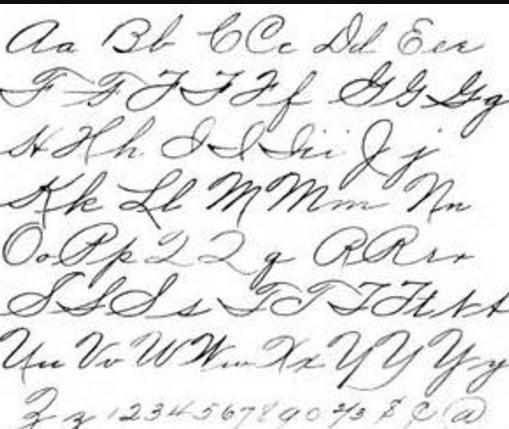 Aa Bb CCc Dd Eee
F F F F F f G G G g
H H h I I I i i J j
K k L l M M m N n
O o P p Q Q q R R r r
S S S s T T T T t t t
U u V v W W w X x Y Y Y y
Z z 1234567890 2/3 $ ¢ @